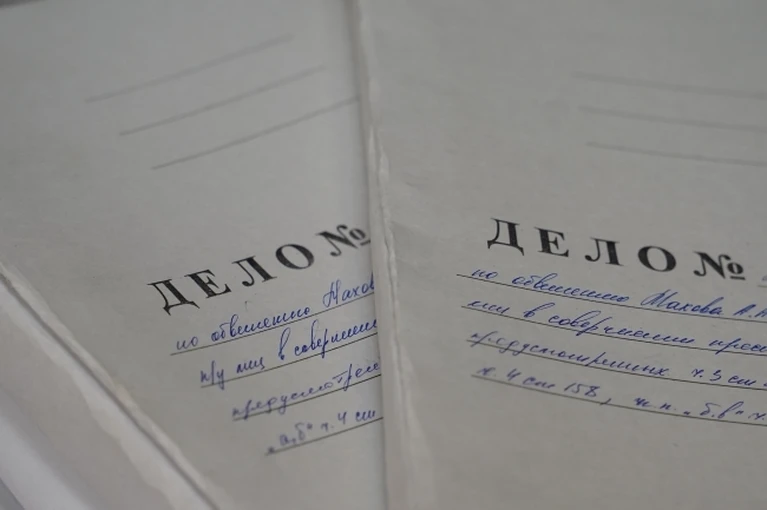 ДЕЛО №
по обвинению Махов
п/у лиц в совершении
предусмотрен
„а,б" ч. 4 ст
ДЕЛО №
по обвинению Махова А.А
лиц в совершении прес
предусмотренных ч. 3 ст
ч. 4 ст 158, п.п. „б,в" ч.